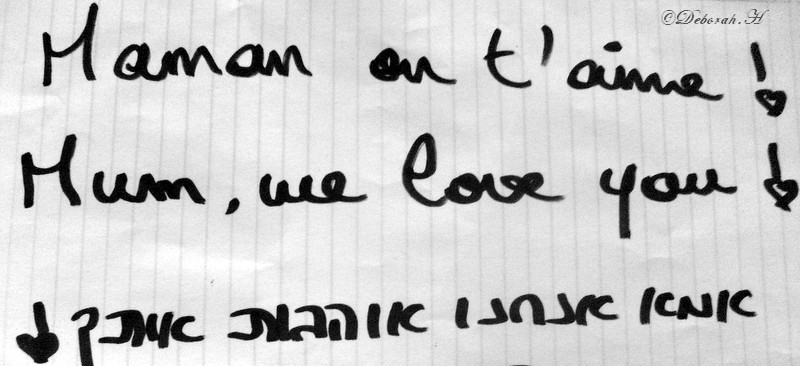 ©Deborah.H
Maman on t'aime !
Mum, we love you !
אמא אנחנו אוהבות אותך !